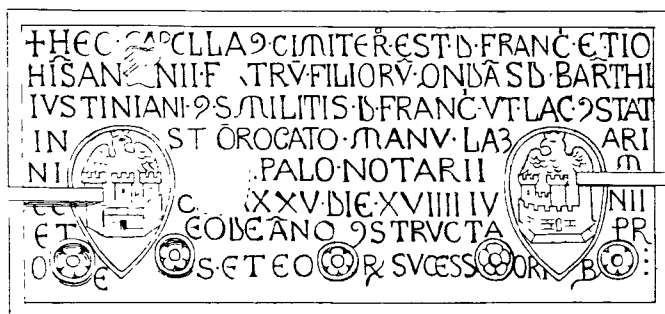 +HEC·CAPELLA·Ↄ·CIMITER̄·EST·D·FRANC̄·ETIO
HIS̄AN NII·F TRV̄·FILIORV̄·ONDAS̄D·BARTHI
IVSTINIANI·Ↄ·S·MILITIS·D·FRANC̄·VT·LAC·ↃSTAT
IN ST ŌROGATO·MANV·LAƷ ARI
NI PALO·NOTARII M
C XXV·DIE·XVIIII IV NII
ET EODEĀNO ↃSTRVCTA PR
O E S·ET EO RꝜ SVCESS ORI B